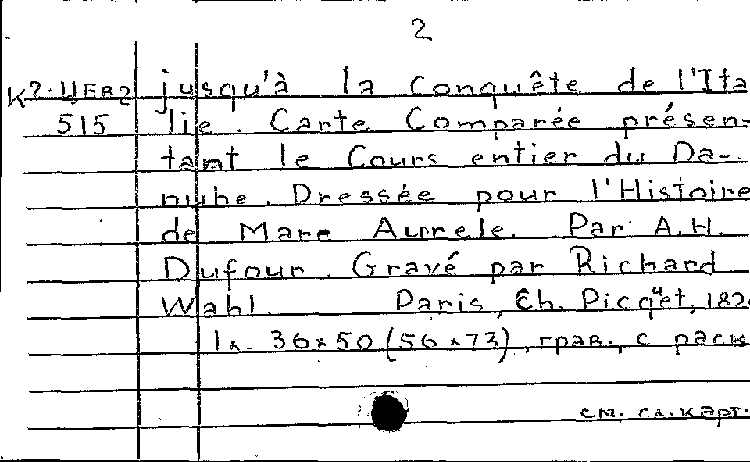 2
К2-ЦЕВ2 jusqu'à la Conquête de l'Ita
515 lie. Carte Comparée présen-
tant le Cours entier du Da-
nube. Dressée pour l'Histoire
de Marc Aurele. Par A.H.
Dufour. Gravé par Richard
Wahl. Paris, Ch. Picquet, 182
1 л. 36×50 (56×73), грав., с раск
см. сл. карт.